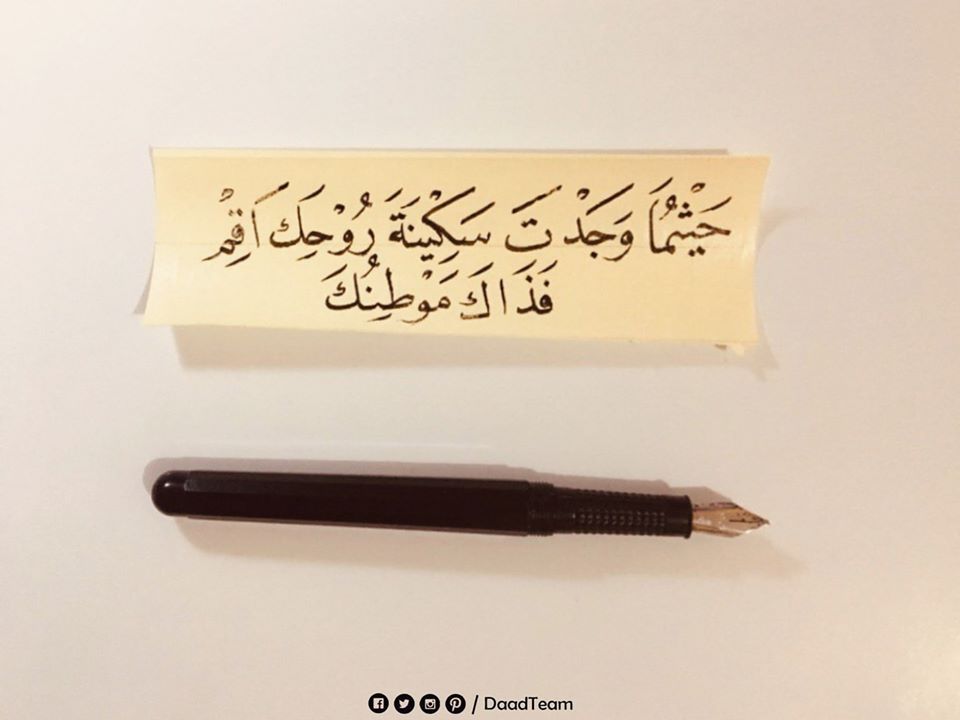 حَيْثُمَا وَجَدْتَ سَكِيْنَةَ رُوْحِكَ أَقِمْ
فَذَاكَ مَوْطِنُكَ
/ DaadTeam